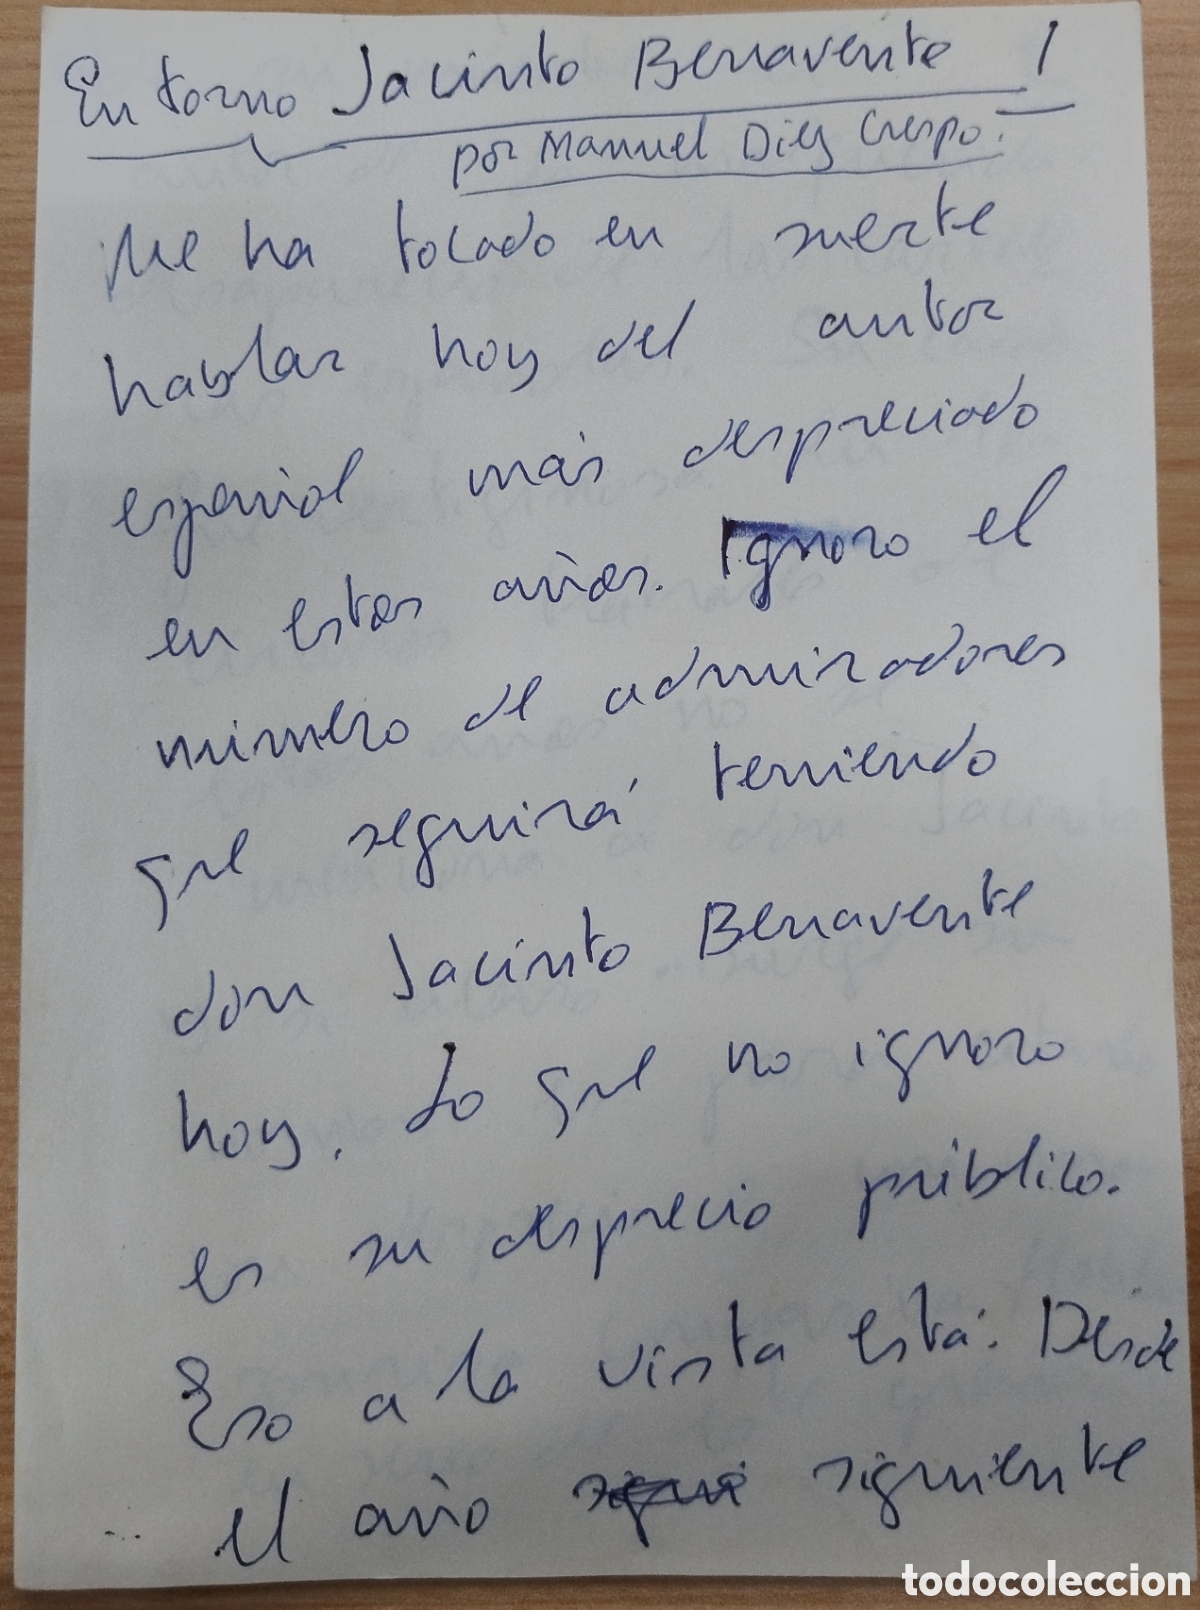 En torno Jacinto Benavente 1
por Manuel Diez Crespo.
Me ha tocado en suerte
hablar hoy del autor
español más despreciado
en estos años. Ignoro el
número de admiradores
que seguirá teniendo
don Jacinto Benavente
hoy. Lo que no ignoro
es su desprecio público.
Eso a la vista está. Desde
el año siguiente
todocoleccion